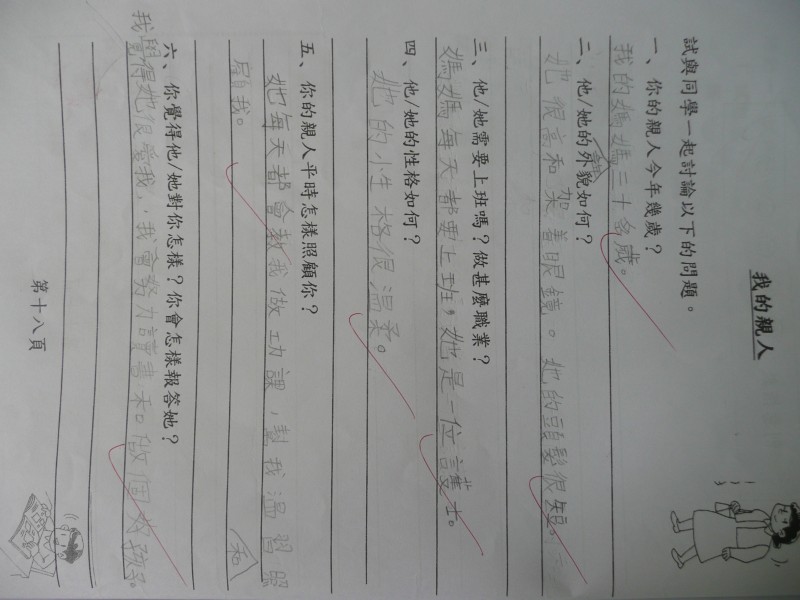 我的親人
試與同學一起討論以下的問題。
一、你的親人今年幾歲？
我的媽媽三十多歲。
二、他/她的外貌如何？
她很高和架着眼鏡。她的頭髮很短。
三、他/她需要上班嗎？做甚麼職業？
媽媽每天都要上班，她是一位護士。
四、他/她的性格如何？
她的小生格很溫柔。
五、你的親人平時怎樣照顧你？
她每天都會教我做功課，幫我溫習照
顧我。
和
六、你覺得他/她對你怎樣？你會怎樣報答她？
我覺得她很愛我，我會努力讀書和做個好孩子。
第十八頁